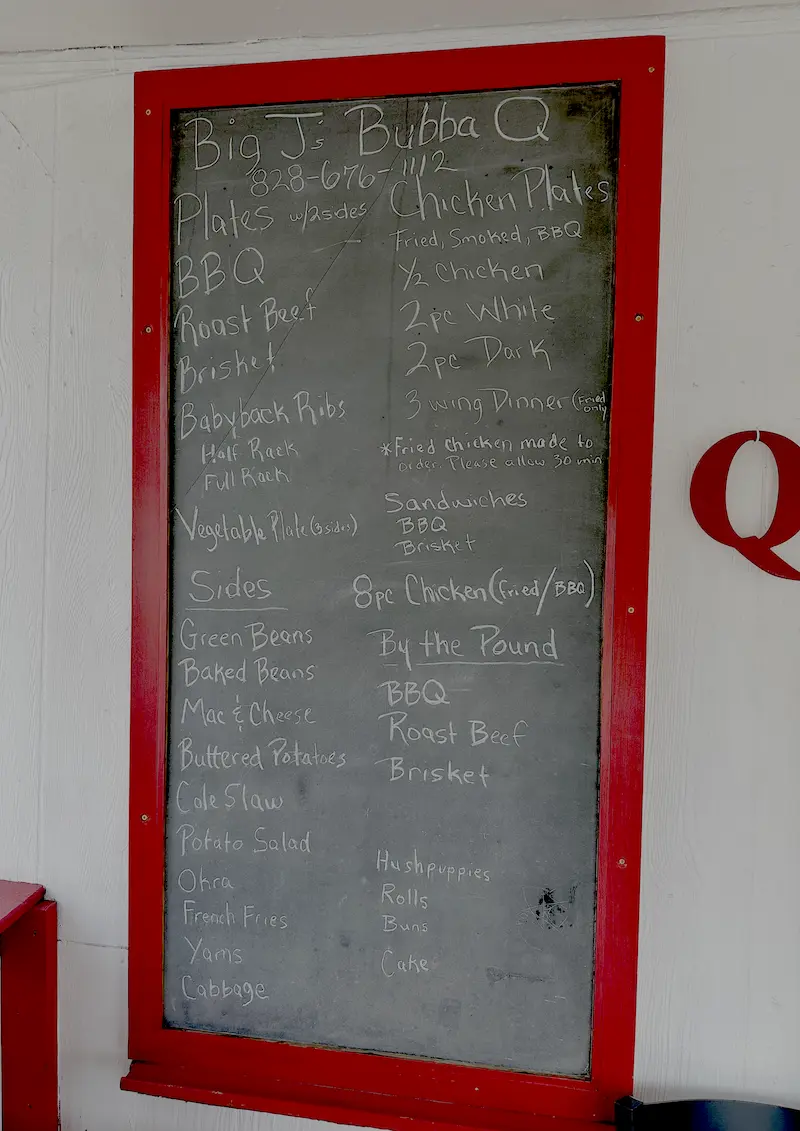 Big J's Bubba Q
828-676-1112
Plates w/2sides
BBQ
Roast Beef
Brisket
Babyback Ribs
Half Rack
Full Rack
Vegetable Plate (3 sides)
Sides
Green Beans
Baked Beans
Mac & Cheese
Buttered Potatoes
Cole Slaw
Potato Salad
Okra
French Fries
Yams
Cabbage
Chicken Plates
Fried, Smoked, BBQ
1/2 Chicken
2pc White
2pc Dark
3 wing Dinner (Fried
only
*Fried chicken made to
order. Please allow 30 min
Sandwiches
BBQ
Brisket
8pc Chicken (Fried/BBQ)
By the Pound
BBQ
Roast Beef
Brisket
Hushpuppies
Rolls
Buns
Cake
Q